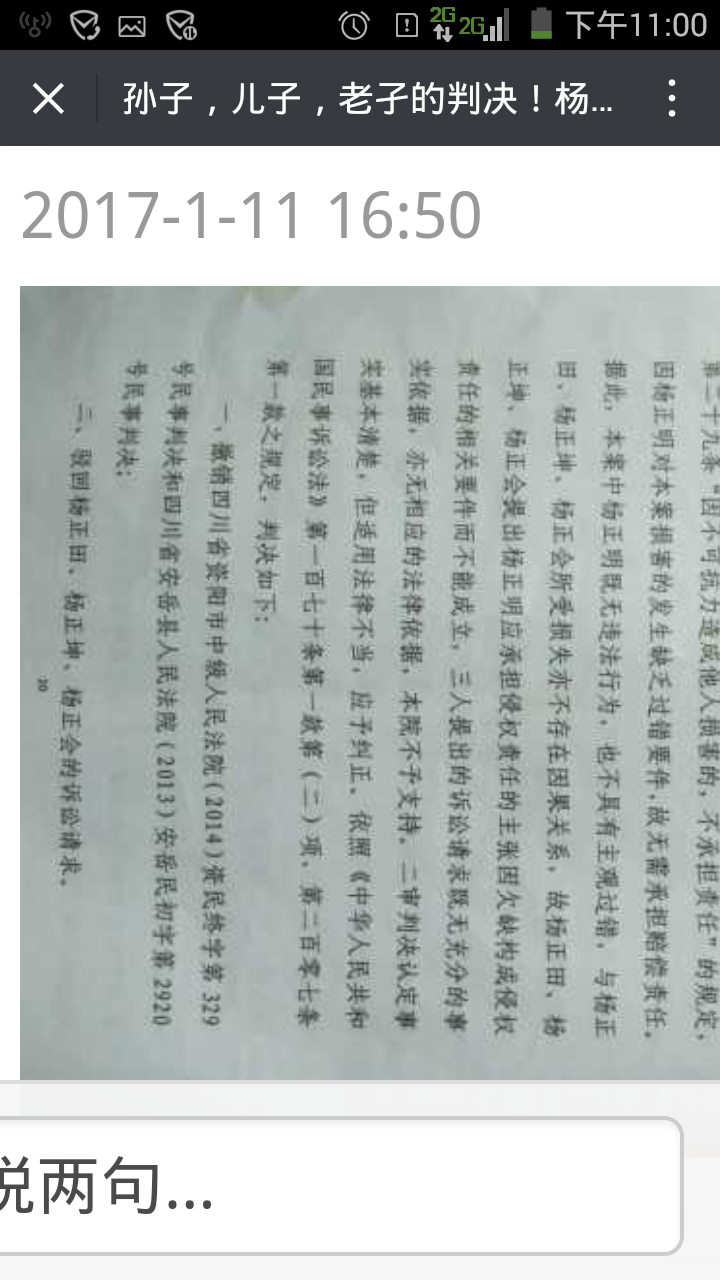 2G 2G 下午11:00
孙子，儿子，老子的判决！杨...
2017-1-11 16:50
第二十九条“因不可抗力造成他人损害的，不承担责任”的规定，
因杨正明对本案损害的发生缺乏过错要件，故无需承担赔偿责任。
据此，本案中杨正明既无违法行为，也不具有主观过错，与杨正
田、杨正坤、杨正会所受损失亦不存在因果关系，故杨正田、杨
正坤、杨正会提出杨正明应承担侵权责任的主张因欠缺构成侵权
责任的相关要件而不能成立，三人提出的诉讼请求既无充分的事
实依据，亦无相应的法律依据，本院不予支持。二审判决认定事
实基本清楚，但适用法律不当，应予纠正。依照《中华人民共和
国民事诉讼法》第一百七十条第一款第（二）项、第二百零七条
第一款之规定，判决如下：
一、撤销四川省资阳市中级人民法院（2014）资民终字第 329
号民事判决和四川省安岳县人民法院（2013）安岳民初字第 2920
号民事判决；
二、驳回杨正田、杨正坤、杨正会的诉讼请求。
20
说两句...